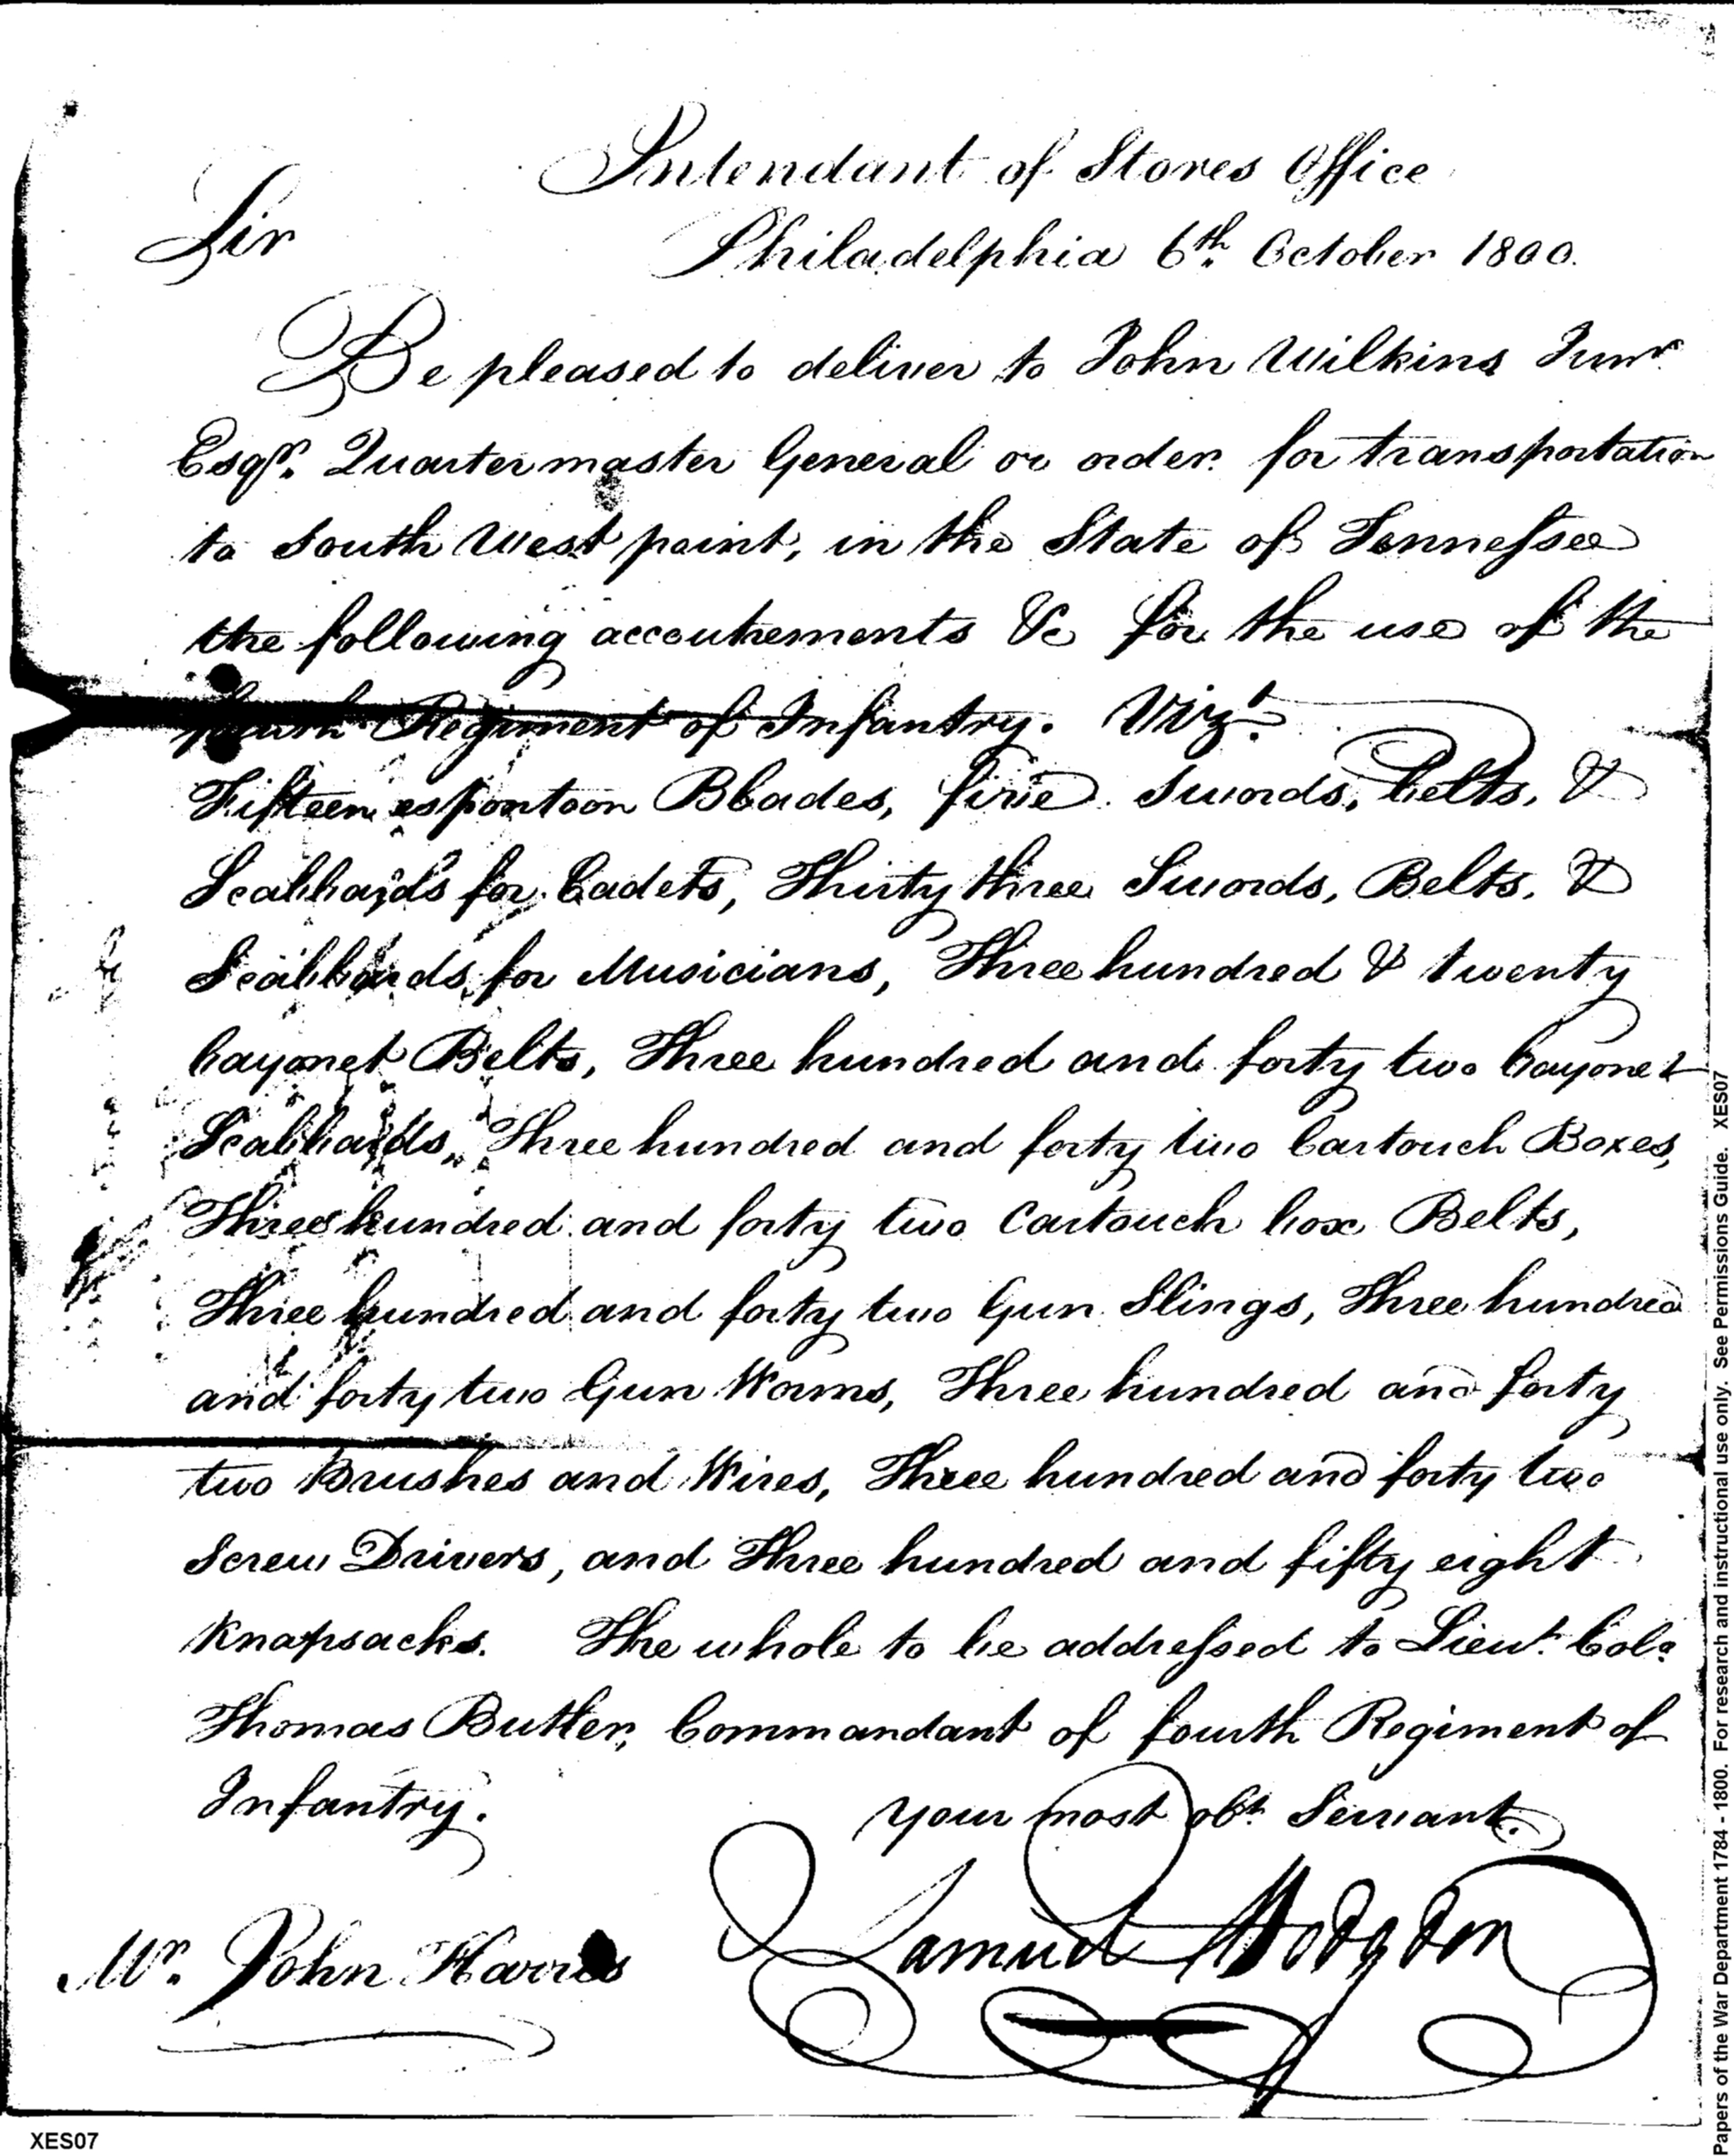 Intendant of Stores Office
Sir
Philadelphia 6th. October 1800.
Be pleased to deliver to John Wilkins Junr.
Esqr. Quartermaster General or order for transportation
to South West point, in the State of Tennessee
the following accoutrements &c for the use of the
fourth Regiment of Infantry. Vizt.
Fifteen espontoon Blades, five Swords, belts, &
Scabbards for Cadets, Thirty three Swords, Belts, &
Scabbards for Musicians, Three hundred & twenty
bayonet Belts, Three hundred and forty two bayonet
Scabbards, Three hundred and forty two Cartouch Boxes,
Three hundred and forty two Cartouch box Belts,
Three hundred and forty two Gun Slings, Three hundred
and forty two Gun Worms, Three hundred and forty
two Brushes and Wires, Three hundred and forty two
Screw Drivers, and Three hundred and fifty eight
Knapsacks. The whole to be addressed to Lieut. Colo.
Thomas Butler, Commandant of fourth Regiment of
Infantry.
your most obt. Servant.
Samuel Hodgdon
Mr. John Harris
XES07
Papers of the War Department 1784 - 1800. For research and instructional use only. See Permissions Guide. XES07